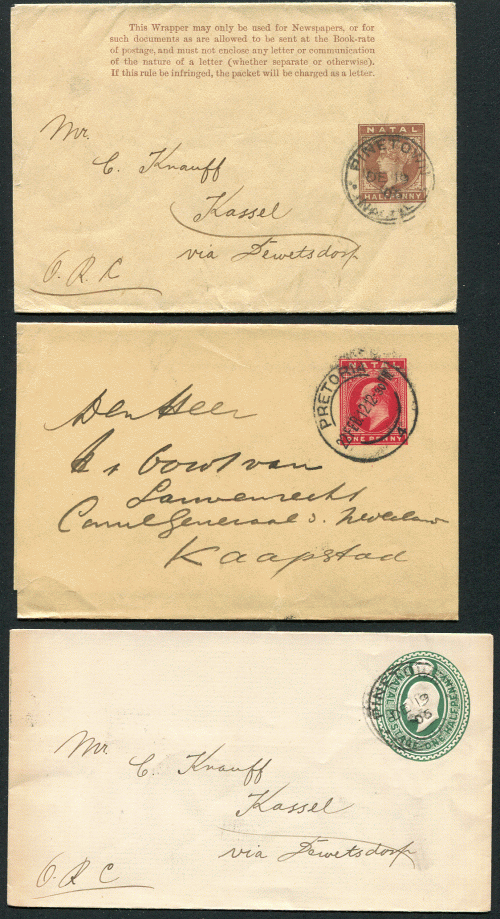 This Wrapper may only be used for Newspapers, or for
such documents as are allowed to be sent at the Book-rate
of postage, and must not enclose any letter or communication
of the nature of a letter (whether separate or otherwise).
If this rule be infringed, the packet will be charged as a letter.
NATAL
HALFPENNY
PINETOWN
DE 19
NATAL
Mr.
C. Knauff
Kassel
via Dewetsdorp
O.R.C
NATAL
ONE PENNY
PRETORIA
FEB 12
4
Den Heer
van
Consul Generaal
Kaapstad
NATAL POSTAGE ONE HALFPENNY
PINETOWN
19
06
Mr.
C. Knauff
Kassel
via Dewetsdorp
O.R.C